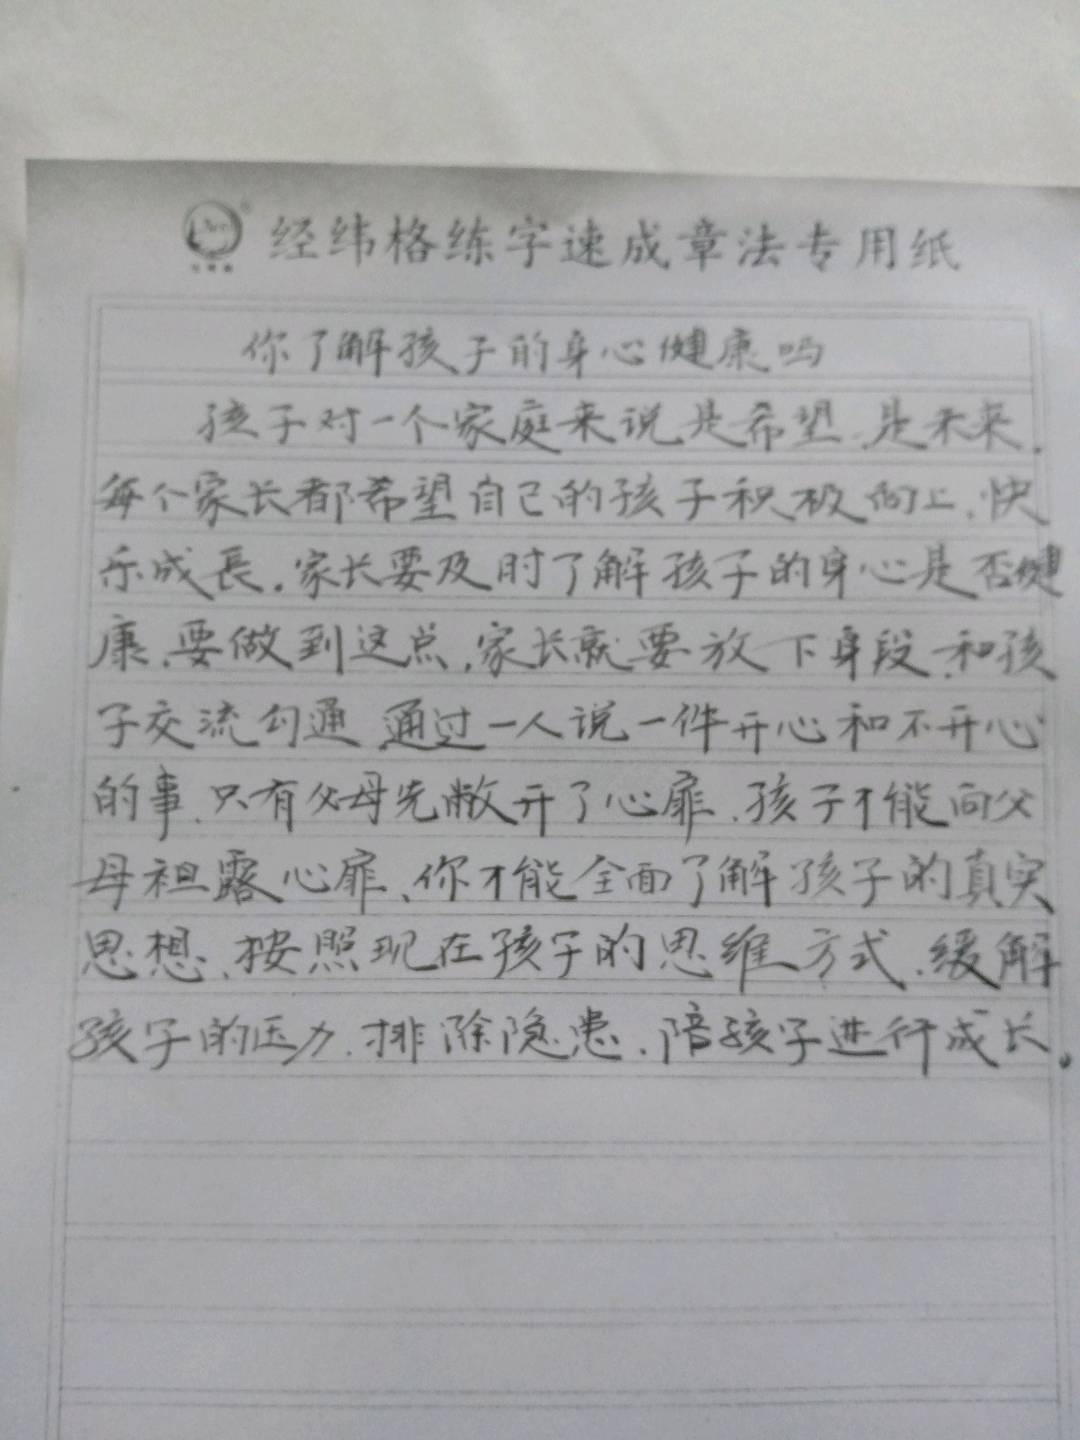 经纬格练字速成章法专用纸
你了解孩子的身心健康吗
孩子对一个家庭来说是希望、是未来.
每个家长都希望自己的孩子积极向上、快
乐成長.家长要及时了解孩子的身心是否健
康、要做到这点,家长就要放下身段、和孩
子交流勾通 通过一人说一件开心和不开心
的事、只有父母先敝开了心扉、孩子才能向父
母袒露心扉、你才能全面了解孩子的真实
思想、按照现在孩子的思维方式、缓解
孩子的压力、排除隐患、陪孩子进行成长。